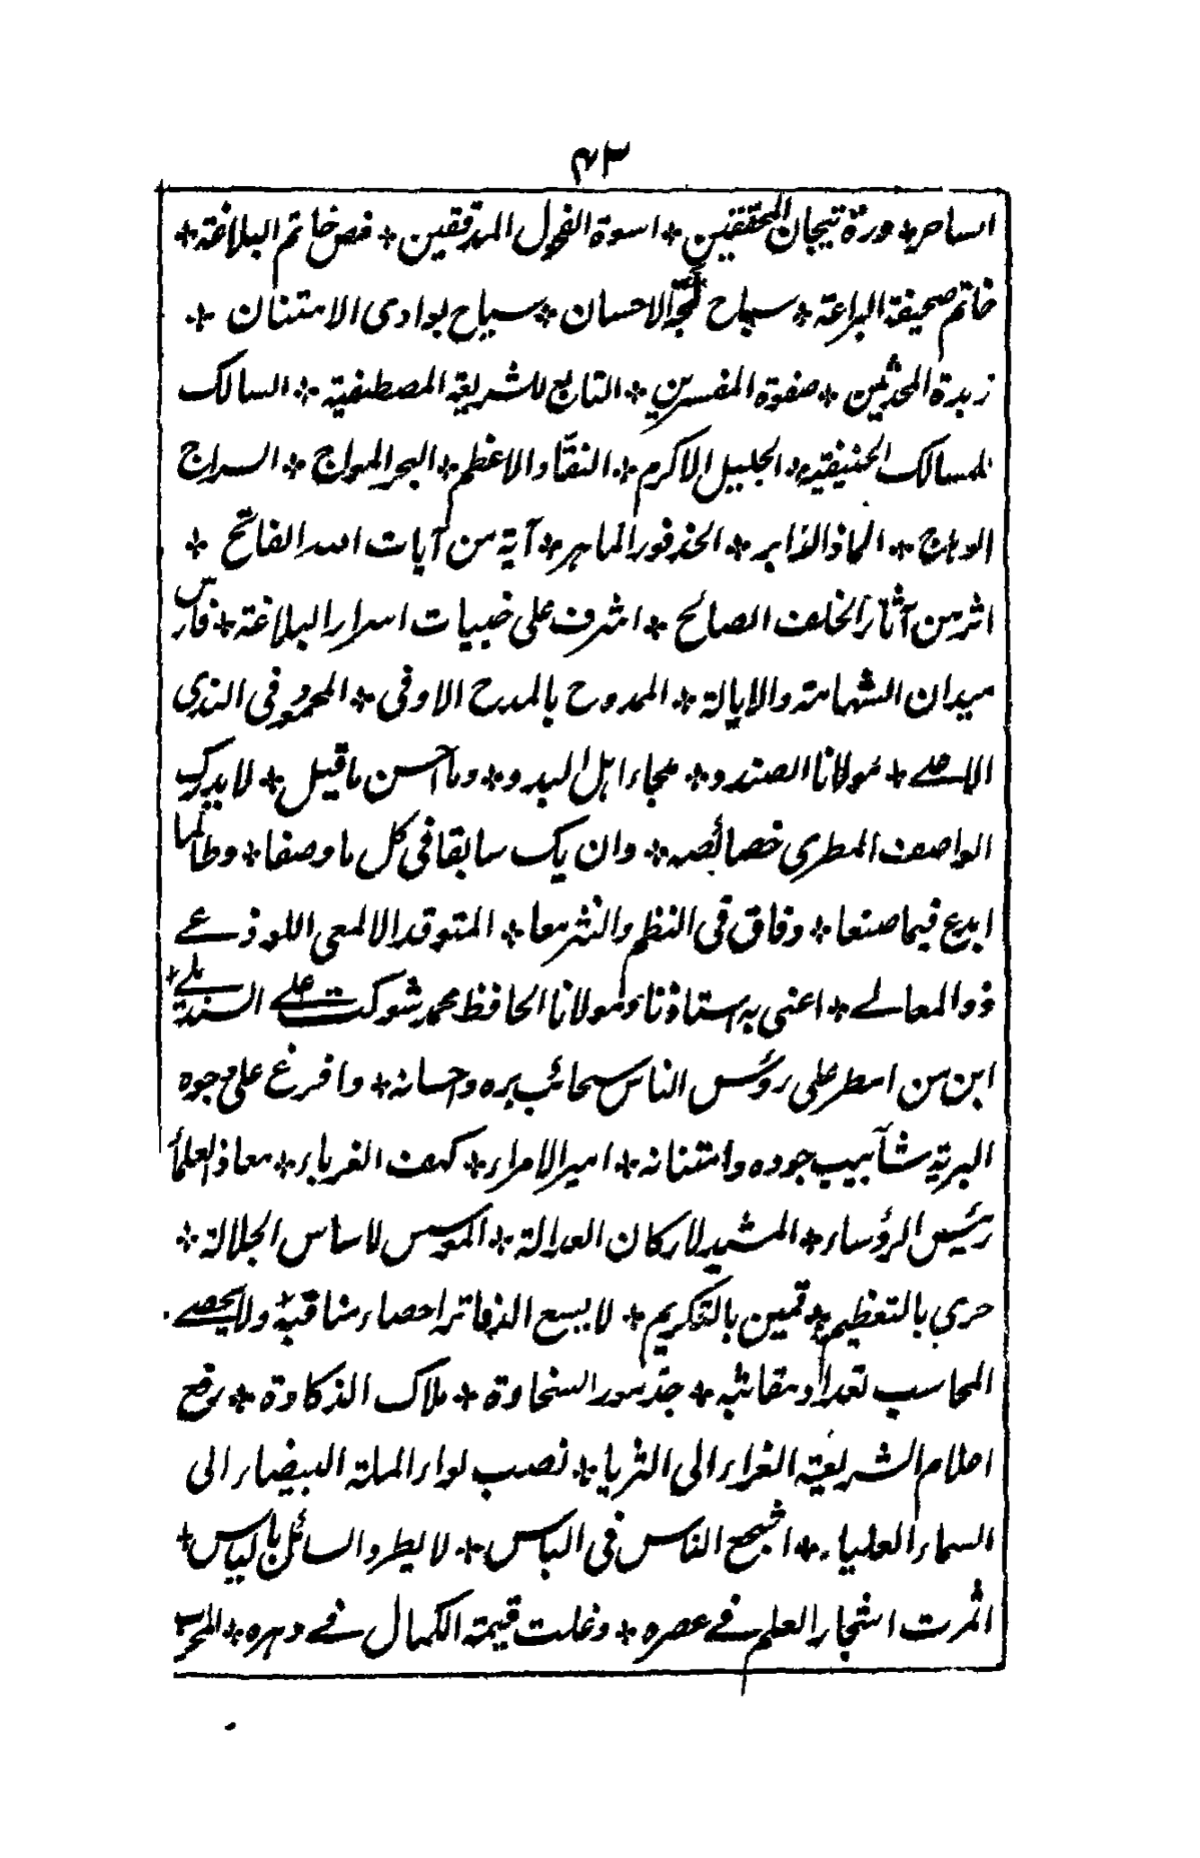 ۴۳
الساحر * درة تيجان المحققين * اسوة الفحول المدققين * فص خاتم البلاغة *
خاتم صحيفة البراعة * سباح لجة الاحسان * سياح بوادى الامتنان *
زبدة المحدثين * صفوة المفسرين * التابع للشريعة المصطفية * السالك
للمسالك الحنيفية * الجليل الاكرم * النقّاد الاعظم * البحر المواج * السراج
الوهاج * الماذ الذابر * الحذفور الماهر * آية من آيات الله الفاتح *
اثر من آثار الخلف الصالح * اشرف على خبيات اسرار البلاغة * فارس
ميدان الشهامة والايالة * الممدوح بالمدح الاوفى * المحمود فى الندى
الاصى * مولانا الصندو * مجاء اهل البدو * وما احسن ما قيل * لا يدرك
الواصف المطرى خصائصه * وان يك سابقا فى كل ما وصفا * وطالما
ابدع فيما صنعا * وفاق فى النظم والنثر معا * المتوقد الالمعى اللوذعى
ذو المعالى * اعنى به استاذنا و مولانا الحافظ محمد شوكت على السنديلى *
ابن من امطر على رؤس الناس سحائب بره واحسانه * وافرغ على وجوه
البرية شآبيب جوده وامتنانه * امير الامراء * كهف الغرباء * معاذ العلماء
رئيس الرؤساء * المشيد لاركان العدالة * المؤسس لاساس الجلالة *
حرى بالتعظيم * قمين بالتكريم * لا يسع الدفاتر احصاء مناقبه * ولا يحصى
المحاسب تعداد مقانبه * جذمور السخاوة * ملاك الذكاوة * رفع
اعلام الشريعة الغراء الى الثريا * نصب لواء الملة البيضاء الى
السماء العلياء * اشجع الناس فى الباس * لا يطرد السائل بالياس *
اثمرت اشجار العلم فى عصره * وغلت قيمة الكمال فى دهره *